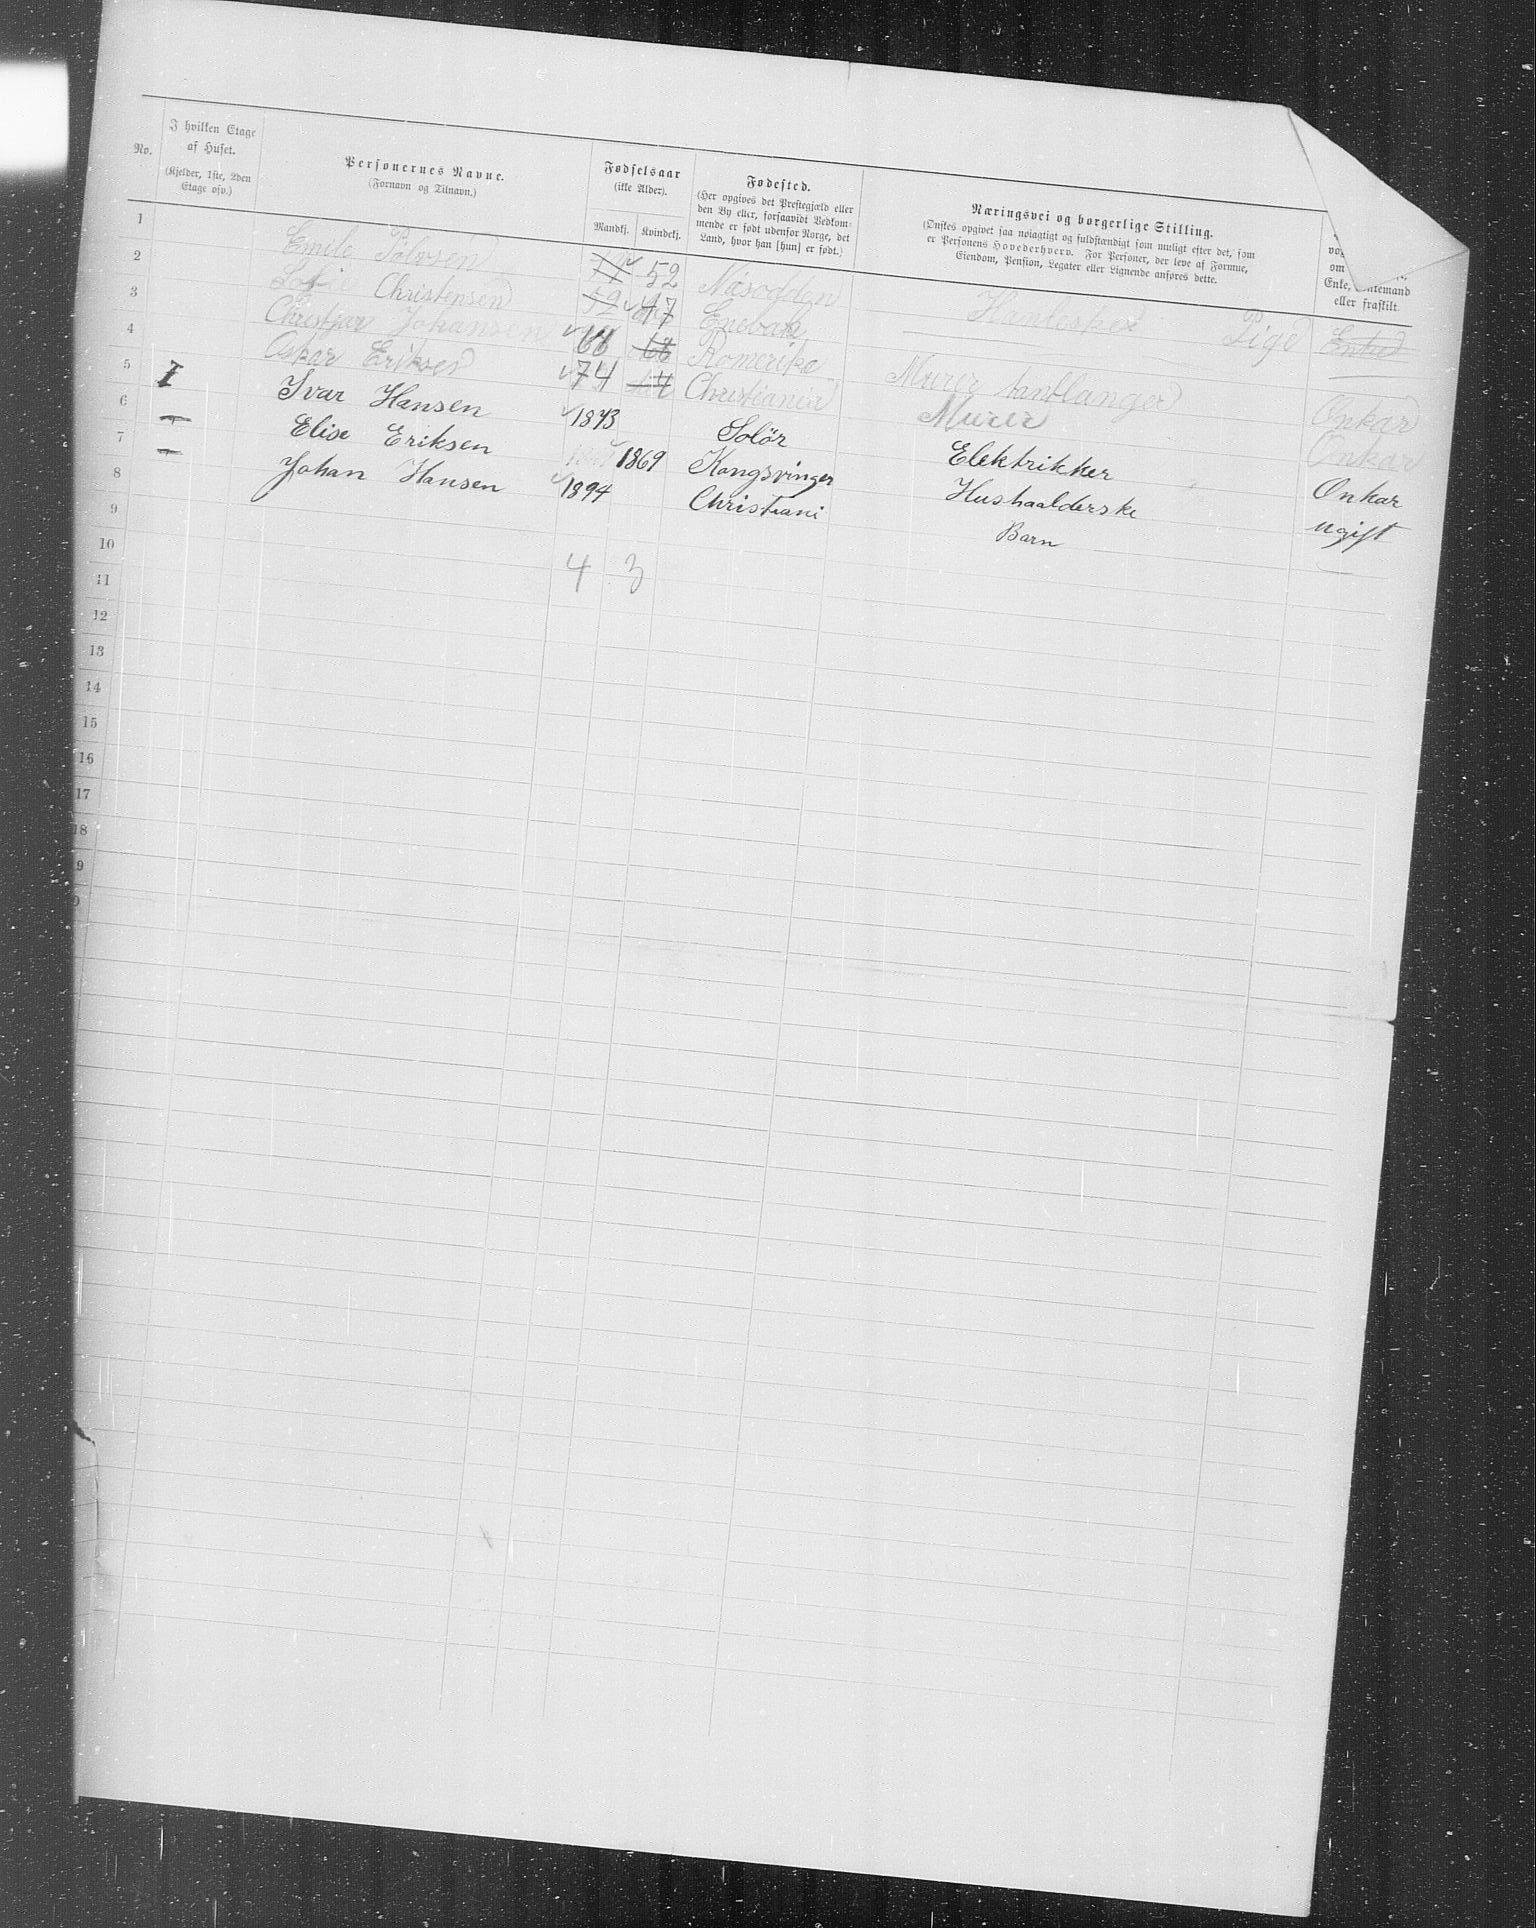 No.
I hvilken Etage af Huset. (Kjelder, 1ste, 2den Etage osv.)
Personernes Navne. (Fornavn og Tilnavn.)
Fødselsaar (ikke Alder). Mandkj. Kvindekj.
Fødested. (Her opgives det Prestegjæld eller den By eller, forsaavidt Vedkommende er født udenfor Norge, det Land, hvor han [hun] er født.)
Næringsvei og borgerlige Stilling. (Ønskes opgivet saa nøiagtigt og fuldstændigt som muligt efter det, som er Personens Hovederhverv. For Personer, der leve af Formue, Eiendom, Pension, Legater eller Lignende anføres dette.
om
Enke, Enkemand
eller fraskilt.
1 Emile 52 Næsodden
2 Christensen 47 Enebak Pige
3 Johansen 68 Romerike Murer Onkar
4 Oskar Eriksen 74 Christiania Murer Onkar
5 I Ivar Hansen 1843 Solör Elektrikker Onkar
6 — Elise Eriksen 1869 Kongsvinger Hushaalderske ugift
7 — Johan Hansen 1894 Christiani Barn —
8
9
10 4 3
11
12
13
14
15
16
17
18
9